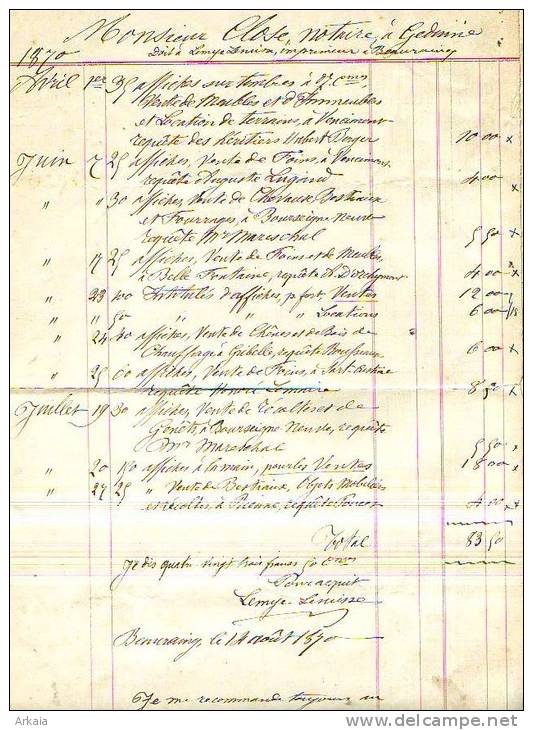 Monsieur Close, notaire, à Gedinne
Doit à Lemye Lenisse, imprimeur à Beauraing
1870
Avril 1er 35 affiches sur timbres à
Vente de Meubles et d'Immeubles
et Location de terrains, à Vencimont
requête des héritiers Hubert 10 00 x
Juin 7 25 affiches, Vente de Foins, à Vencimont,
requête Auguste 4 00 x
" " 30 affiches, Vente de Chevaux, Bestiaux
et Fourrages, à Bourseigne-Neuve
requête Mr Mareschal 5 50 x
" 17 25 affiches, Vente de Foins et de Meubles,
à Belle Fontaine, requête 4 00 x
" 23 100 Intitulés d'affiches, p. fort, Ventes 12 00
" " 50 " " Locations 6 00
" 24 40 affiches, Vente de Chênes et de Bois de
Chauffage, à Gribelle, requête 6 00 x
" 25 60 affiches, Vente de Foins, à
requête Lemaire 8 50 x
Juillet 19 30 affiches, Vente de récoltes et de
Genêts, à Bourseigne Neuve, requête
Mr Mareschal 5 50 x
" 20 150 affiches à la main, pour les Ventes 18 00 x
" 27 25 " Vente de Bestiaux, Objets Mobiliers
et récoltes, à Rienne, requête 4 00 x x
Total 83 50
Je dis quatre vingt trois francs 50 cmes
Pour acquit
Lemye-Lenisse
Beauraing, le 14 août 1870
Je me recommande toujours au
© Arkaia
http://www.delcampe.net